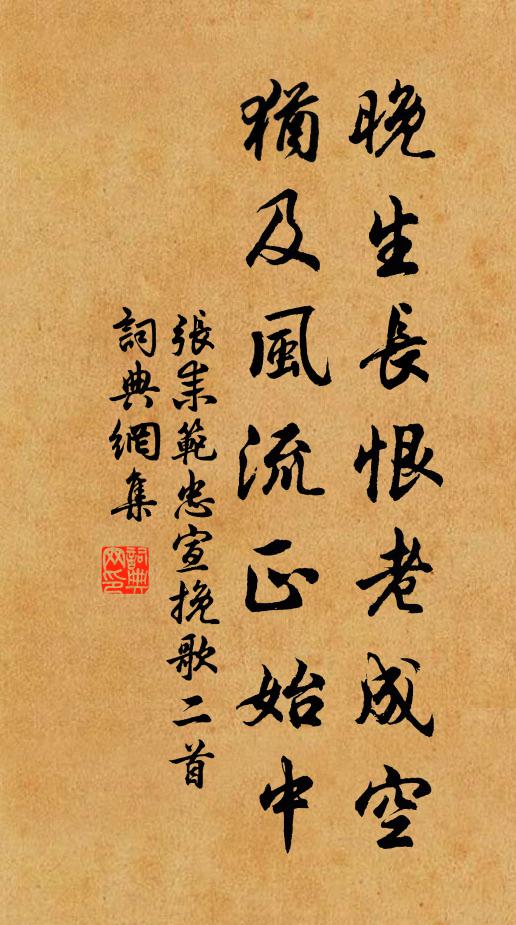 晚生長恨老成空
猶及風流正始中
張耒範忠宣挽歌二首
詞典網集
詞典網印